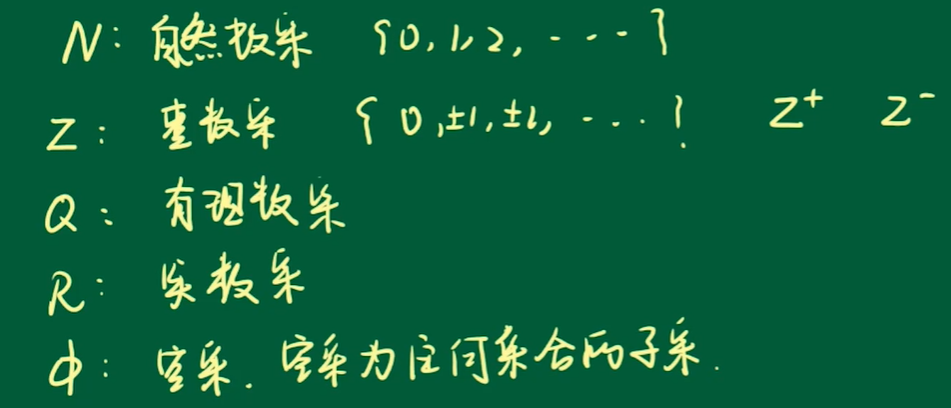 N: 自然数集 {0,1,2,---}
Z: 整数集 {0,±1,±2,...} Z⁺ Z⁻
Q: 有理数集
R: 实数集
Φ: 空集. 空集为任何集合的子集.